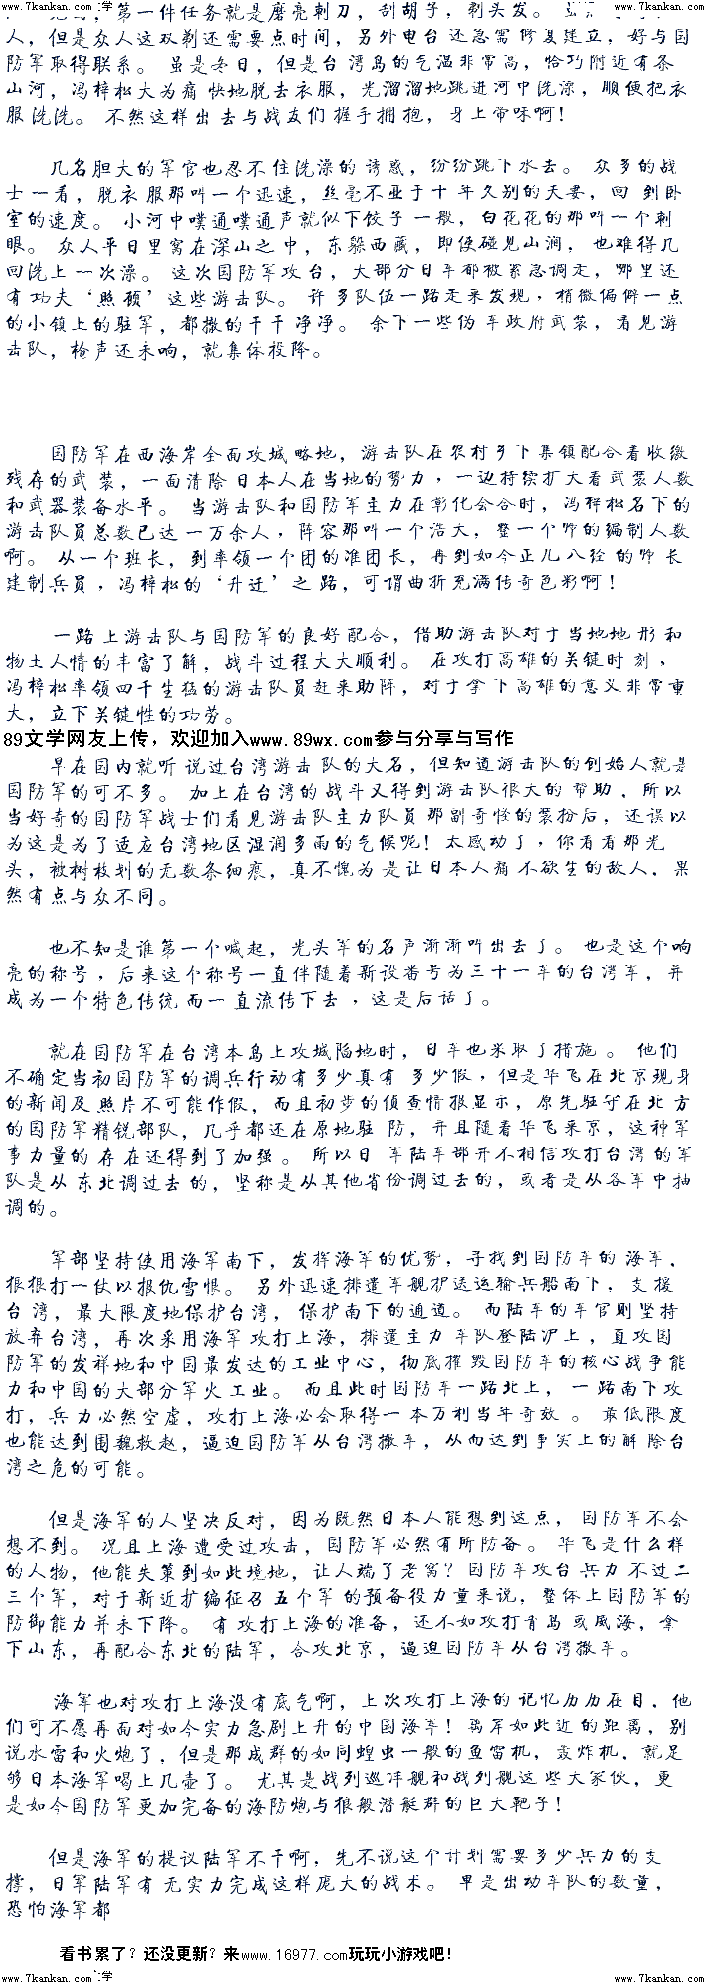 www.7kankan.com 文学 www.7kankan.com
第一件任务就是磨亮刺刀，刮胡子，剃头发。
人，但是众人这双剃还需要点时间，另外电台还急需修复建立，好与国
防军取得联系。 虽是冬日，但是台湾岛的气温非常高，恰巧附近有条
山河，冯梓松大为痛快地脱去衣服，光溜溜地跳进河中洗澡，顺便把衣
服洗洗。 不然这样出去与战友们握手拥抱，身上带味啊！
几名胆大的军官也忍不住洗澡的诱惑，纷纷跳下水去。 众多的战
士一看，脱衣服那叫一个迅速，丝毫不亚于十年久别的夫妻，回到卧
室的速度。 小河中噗通噗通声就似下饺子一般，白花花的那叫一个刺
眼。 众人平日里窝在深山之中，东躲西藏，即使碰见山涧，也难得几
回洗上一次澡。 这次国防军攻台，大部分日军都被紧急调走，哪里还
有功夫‘照顾’这些游击队。 许多队伍一路走来发现，稍微偏僻一点
的小镇上的驻军，都撤的干干净净。 余下一些伪军政府武装，看见游
击队，枪声还未响，就集体投降。
国防军在西海岸全面攻城略地，游击队在农村乡下集镇配合着收缴
残存的武装，一面清除日本人在当地的势力，一边持续扩大着武装人数
和武器装备水平。 当游击队和国防军主力在彰化会合时，冯梓松名下的
游击队员总数已达一万余人，阵容那叫一个浩大，整一个师的编制人数
啊。 从一个班长，到率领一个团的准团长，再到如今正儿八经的师长
建制兵员，冯梓松的‘升迁’之路，可谓曲折充满传奇色彩啊！
一路上游击队与国防军的良好配合，借助游击队对于当地地形和
物土人情的丰富了解，战斗过程大大顺利。 在攻打高雄的关键时刻，
冯梓松率领四千生猛的游击队员赶来助阵，对于拿下高雄的意义非常重
大，立下关键性的功劳。
89文学网友上传，欢迎加入www.89wx.com参与分享与写作
早在国内就听说过台湾游击队的大名，但知道游击队的创始人就是
国防军的可不多。 加上在台湾的战斗又得到游击队很大的帮助，所以
当好奇的国防军战士们看见游击队主力队员那副奇怪的装扮后，还误以
为这是为了适应台湾地区湿润多雨的气候呢！太感动了，你看看那光
头，被树枝划的无数条细痕，真不愧为是让日本人痛不欲生的敌人，果
然有点与众不同。
也不知是谁第一个喊起，光头军的名声渐渐叫出去了。 也是这个响
亮的称号，后来这个称号一直伴随着新设番号为三十一军的台湾军，并
成为一个特色传统而一直流传下去，这是后话了。
就在国防军在台湾本岛上攻城陷地时，日军也采取了措施。 他们
不确定当初国防军的调兵行动有多少真有多少假，但是华飞在北京现身
的新闻及照片不可能作假，而且初步的侦查情报显示，原先驻守在北方
的国防军精锐部队，几乎都还在原地驻防，并且随着华飞来京，这种军
事力量的存在还得到了加强。 所以日军陆军部并不相信攻打台湾的军
队是从东北调过去的，坚称是从其他省份调过去的，或者是从各军中抽
调的。
军部坚持使用海军南下，发挥海军的优势，寻找到国防军的海军，
狠狠打一仗以报仇雪恨。 另外迅速排遣军舰护送运输兵船南下，支援
台湾，最大限度地保护台湾，保护南下的通道。 而陆军的军官则坚持
放弃台湾，再次采用海军攻打上海，排遣主力军队登陆沪上，直攻国
防军的发祥地和中国最发达的工业中心，彻底摧毁国防军的核心战争能
力和中国的大部分军火工业。 而且此时国防军一路北上，一路南下攻
打，兵力必然空虚，攻打上海必会取得一本万利当年奇效。 最低限度
也能达到围魏救赵，逼迫国防军从台湾撤军，从而达到事实上的解除台
湾之危的可能。
但是海军的人坚决反对，因为既然日本人能想到这点，国防军不会
想不到。 况且上海遭受过攻击，国防军必然有所防备。 华飞是什么样
的人物，他能失策到如此境地，让人端了老窝？国防军攻台兵力不过二
三个军，对于新近扩编征召五个军的预备役力量来说，整体上国防军的
防御能力并未下降。 有攻打上海的准备，还不如攻打青岛或威海，拿
下山东，再配合东北的陆军，合攻北京，逼迫国防军从台湾撤军。
海军也对攻打上海没有底气啊，上次攻打上海的记忆历历在目，他
们可不愿再面对如今实力急剧上升的中国海军！离岸如此近的距离，别
说水雷和火炮了，但是那成群的如同蝗虫一般的鱼雷机，轰炸机，就足
够日本海军喝上几壶了。 尤其是战列巡洋舰和战列舰这些大家伙，更
是如今国防军更加完备的海防炮与狼般潜艇群的巨大靶子！
但是海军的提议陆军不干啊，先不说这个计划需要多少兵力的支
撑，日军陆军有无实力完成这样庞大的战术。 单是出动军队的数量，
恐怕海军都
看书累了？还没更新？来www.16977.com玩玩小游戏吧！
www.7kankan.com 文学 www.7kankan.com